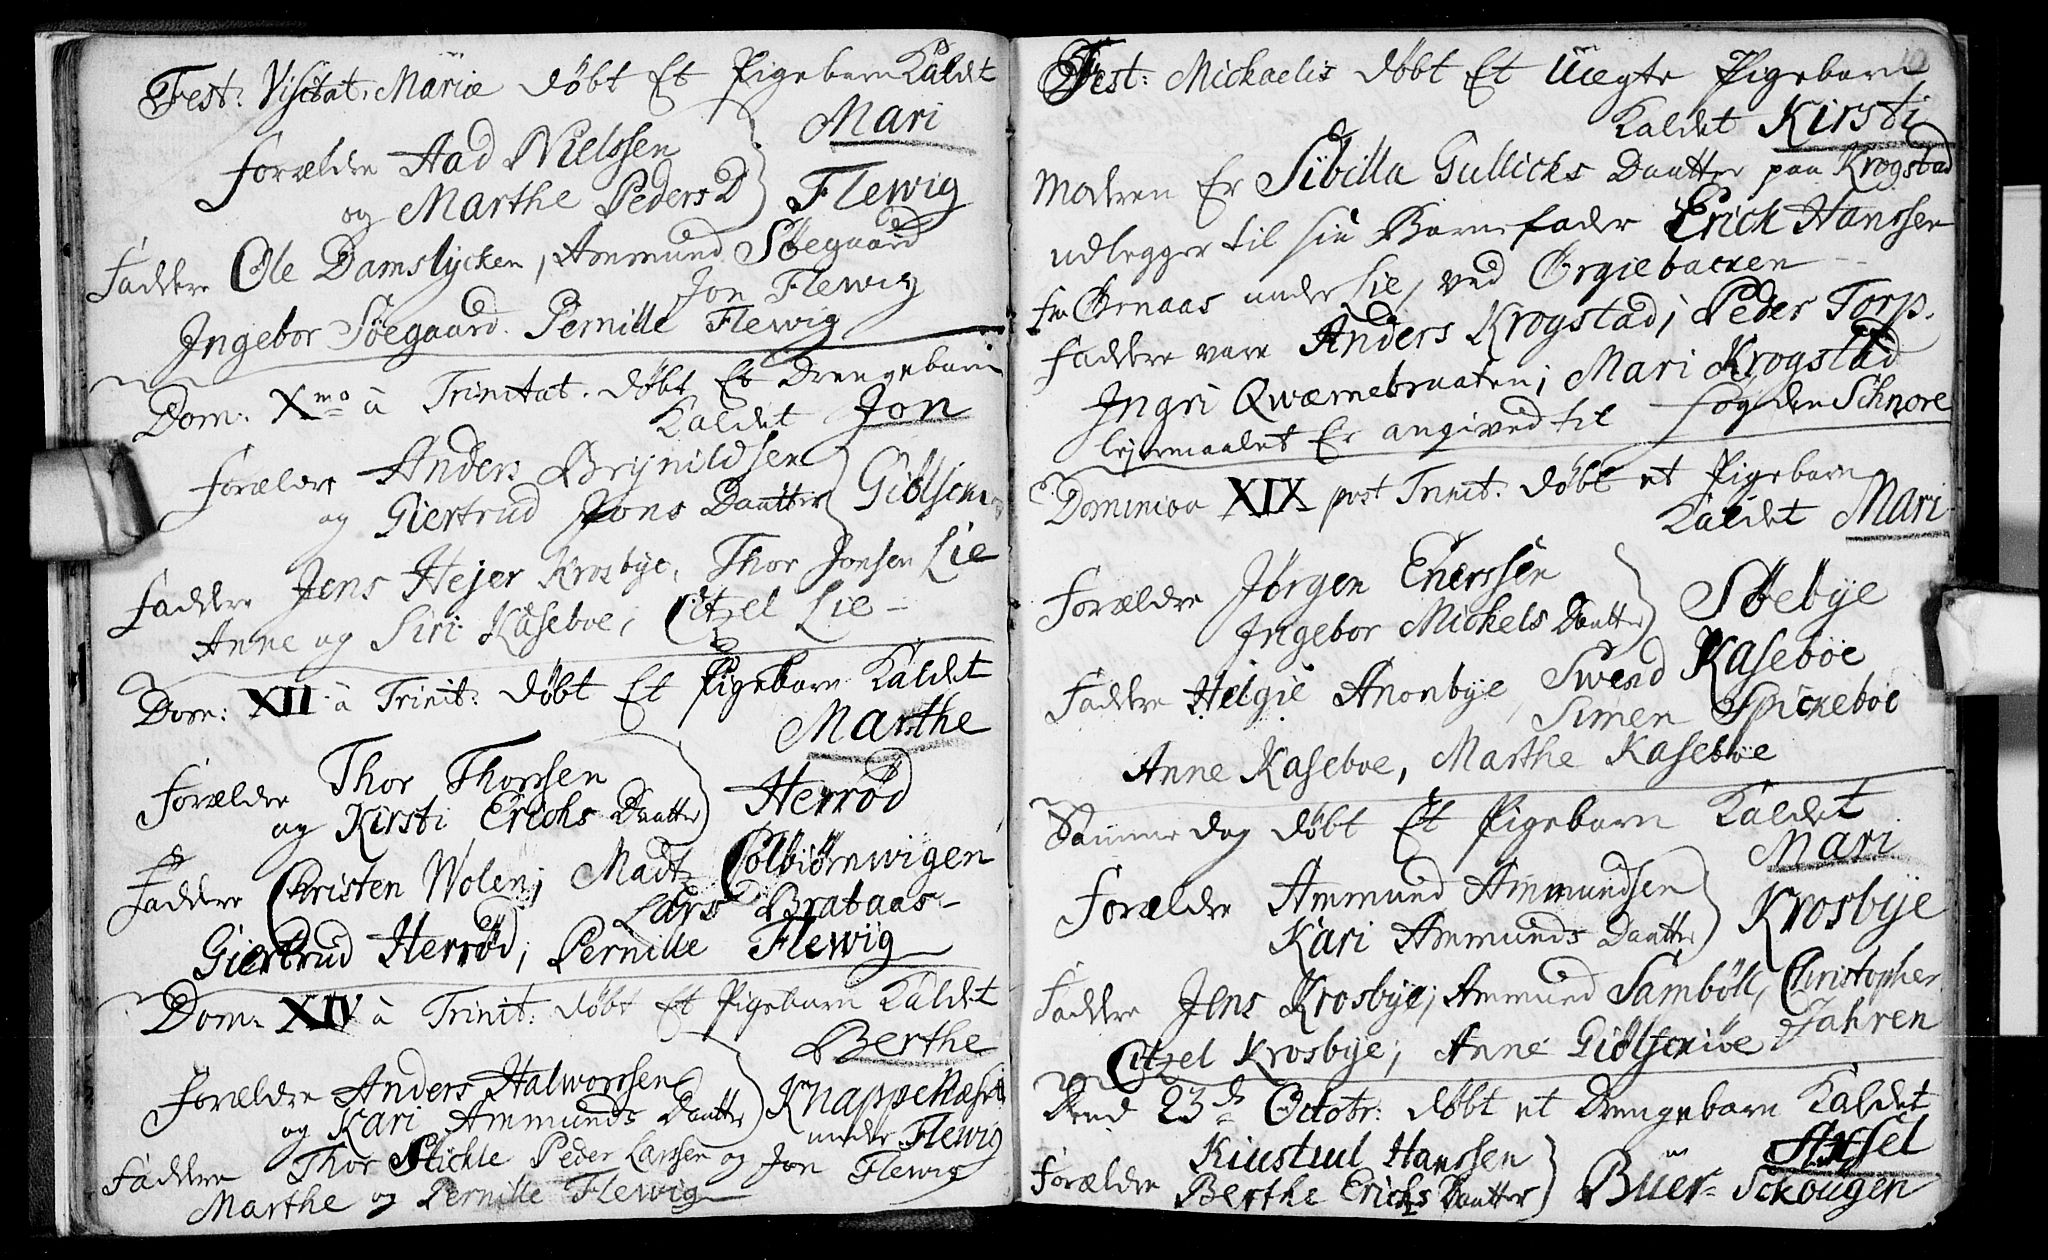 Fest: Visitat. Mariæ døbt Et Pigebarn Kaldet
Mari
Forældre Aad Nielssen
og Marthe Peders D Flewig
Faddere Ole Damslycken, Ammund Søegaard
Jon Flewig
Ingebor Søegaard. Pernille Flewig
Dom: Xmo à Trinitat. døbt Et Drengebarn
Kaldet Jon
Forældre Anders Brynildsen
og Giertrud Jons Daatter
Faddere Jens Hejer Krosbye, Thor Jonsen Lie
Anne og Siri Kaseboe, Citzel Lie
Dom: XII à Trinit: døbt Et Pigebarn Kaldet
Marthe
Forældre Thor Thorssen
og Kirsti Erichs Daatter Herrød
Faddere Christen Wolen; Madz Colbiørnwigen
Lars Brataas
Giertrud Herrød; Pernille Flewig
Dom. XIV à Trinit: døbt Et Pigebarn Kaldet
Berthe
Forældre Anders Halworssen
og Kari Ammunds Daatter Knappenæset
under Flewig
Faddere Thor Stichle Peder Larssen og Jon Flewig
Marthe og Pernille Flewig
10
Fest: Michaelis døbt Et Uægte Pigebarn
Kaldet Kirsti
Modren Er Sibilla Gullichs Daatter paa Krogstad
udlegger til sin Barnefader Erich Hanssen
fra Ørnaas under Lie, ved Ørgiebacken
Faddere vare Anders Krogstad; Peder Torp.
Ingri Qwærnebraaten; Mari Krogstad
lejermaalet Er angived til fogden Schnore
Dominica XIX post Trinit. døbt et Pigebarn
Kaldet Mari
Forældre Jørgen Enerssen
Ingebor Michels Daatter Søebye
Faddere Helgie Anonbye, Swend Kasebøe
Simen Spickeboe
Anne Kaseboe, Marthe Kasebøe
Samme dag døbt Et Pigebarn Kaldet
Mari
Forældre Ammund Ammundsen
Kari Ammunds Daatter Krosbye
Faddere Jens Krosbye; Ammund Sambøll, Christopher
Jahren
Citzel Krosbye; Anne
Dend 23de Octobr: døbt et Drengebarn Kaldet
Axsel
Hanssen
Forældre Berthe Erichs Daatter Buer-Schougen